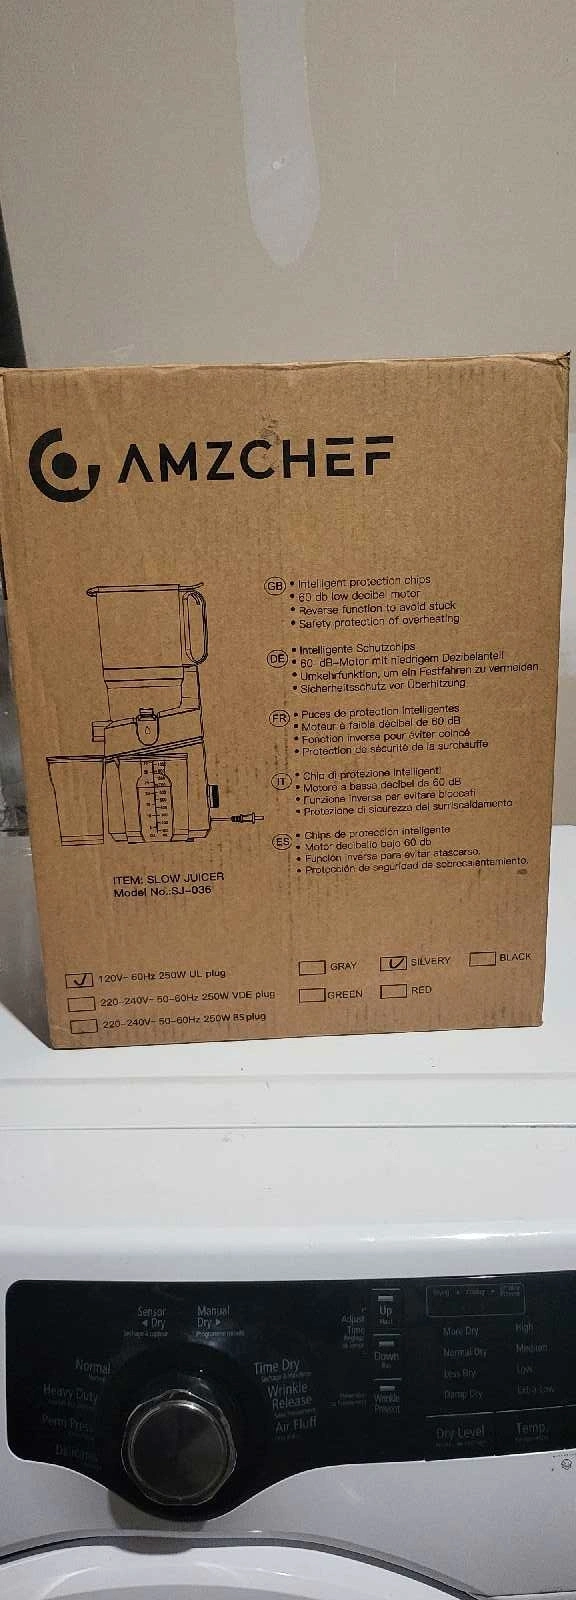 AMZCHEF
GB
• Intelligent protection chips
• 60 db low decibel motor
• Reverse function to avoid stuck
• Safety protection of overheating
DE
• Intelligente Schutzchips
• 60 dB-Motor mit niedrigem Dezibelanteil
• Umkehrfunktion, um ein Festfahren zu vermeiden
• Sicherheitsschutz vor Überhitzung
FR
• Puces de protection Intelligentes
• Moteur à faible décibel de 60 dB
• Fonction inverse pour éviter coincé
• Protection de sécurité de la surchauffe
IT
• Chip di protezione Intelligenti
• Motore a bassa decibel da 60 dB
• Funzione inversa per evitare bloccati
• Protezione di sicurezza del surriscaldamento
ES
• Chips de protección inteligente
• Motor decibelio bajo 60 db
• Función inversa para evitar atascarso.
• Protección de seguridad de sobrecalentamiento.
ITEM: SLOW JUICER
Model No.:SJ-036
120V~ 60Hz 250W UL plug
220-240V~ 50-60Hz 250W VDE plug
220-240V~ 50-60Hz 250W BS plug
GRAY SILVERY BLACK
GREEN RED
Sensor Dry
Manual Dry
Normal
Heavy Duty
Perm Press
Delicates
Time Dry
Wrinkle Release
Air Fluff
Adjust Time
Up
Down
Wrinkle Prevent
More Dry
Normal Dry
Less Dry
Damp Dry
Dry Level
High
Medium
Low
Extra Low
Temp.